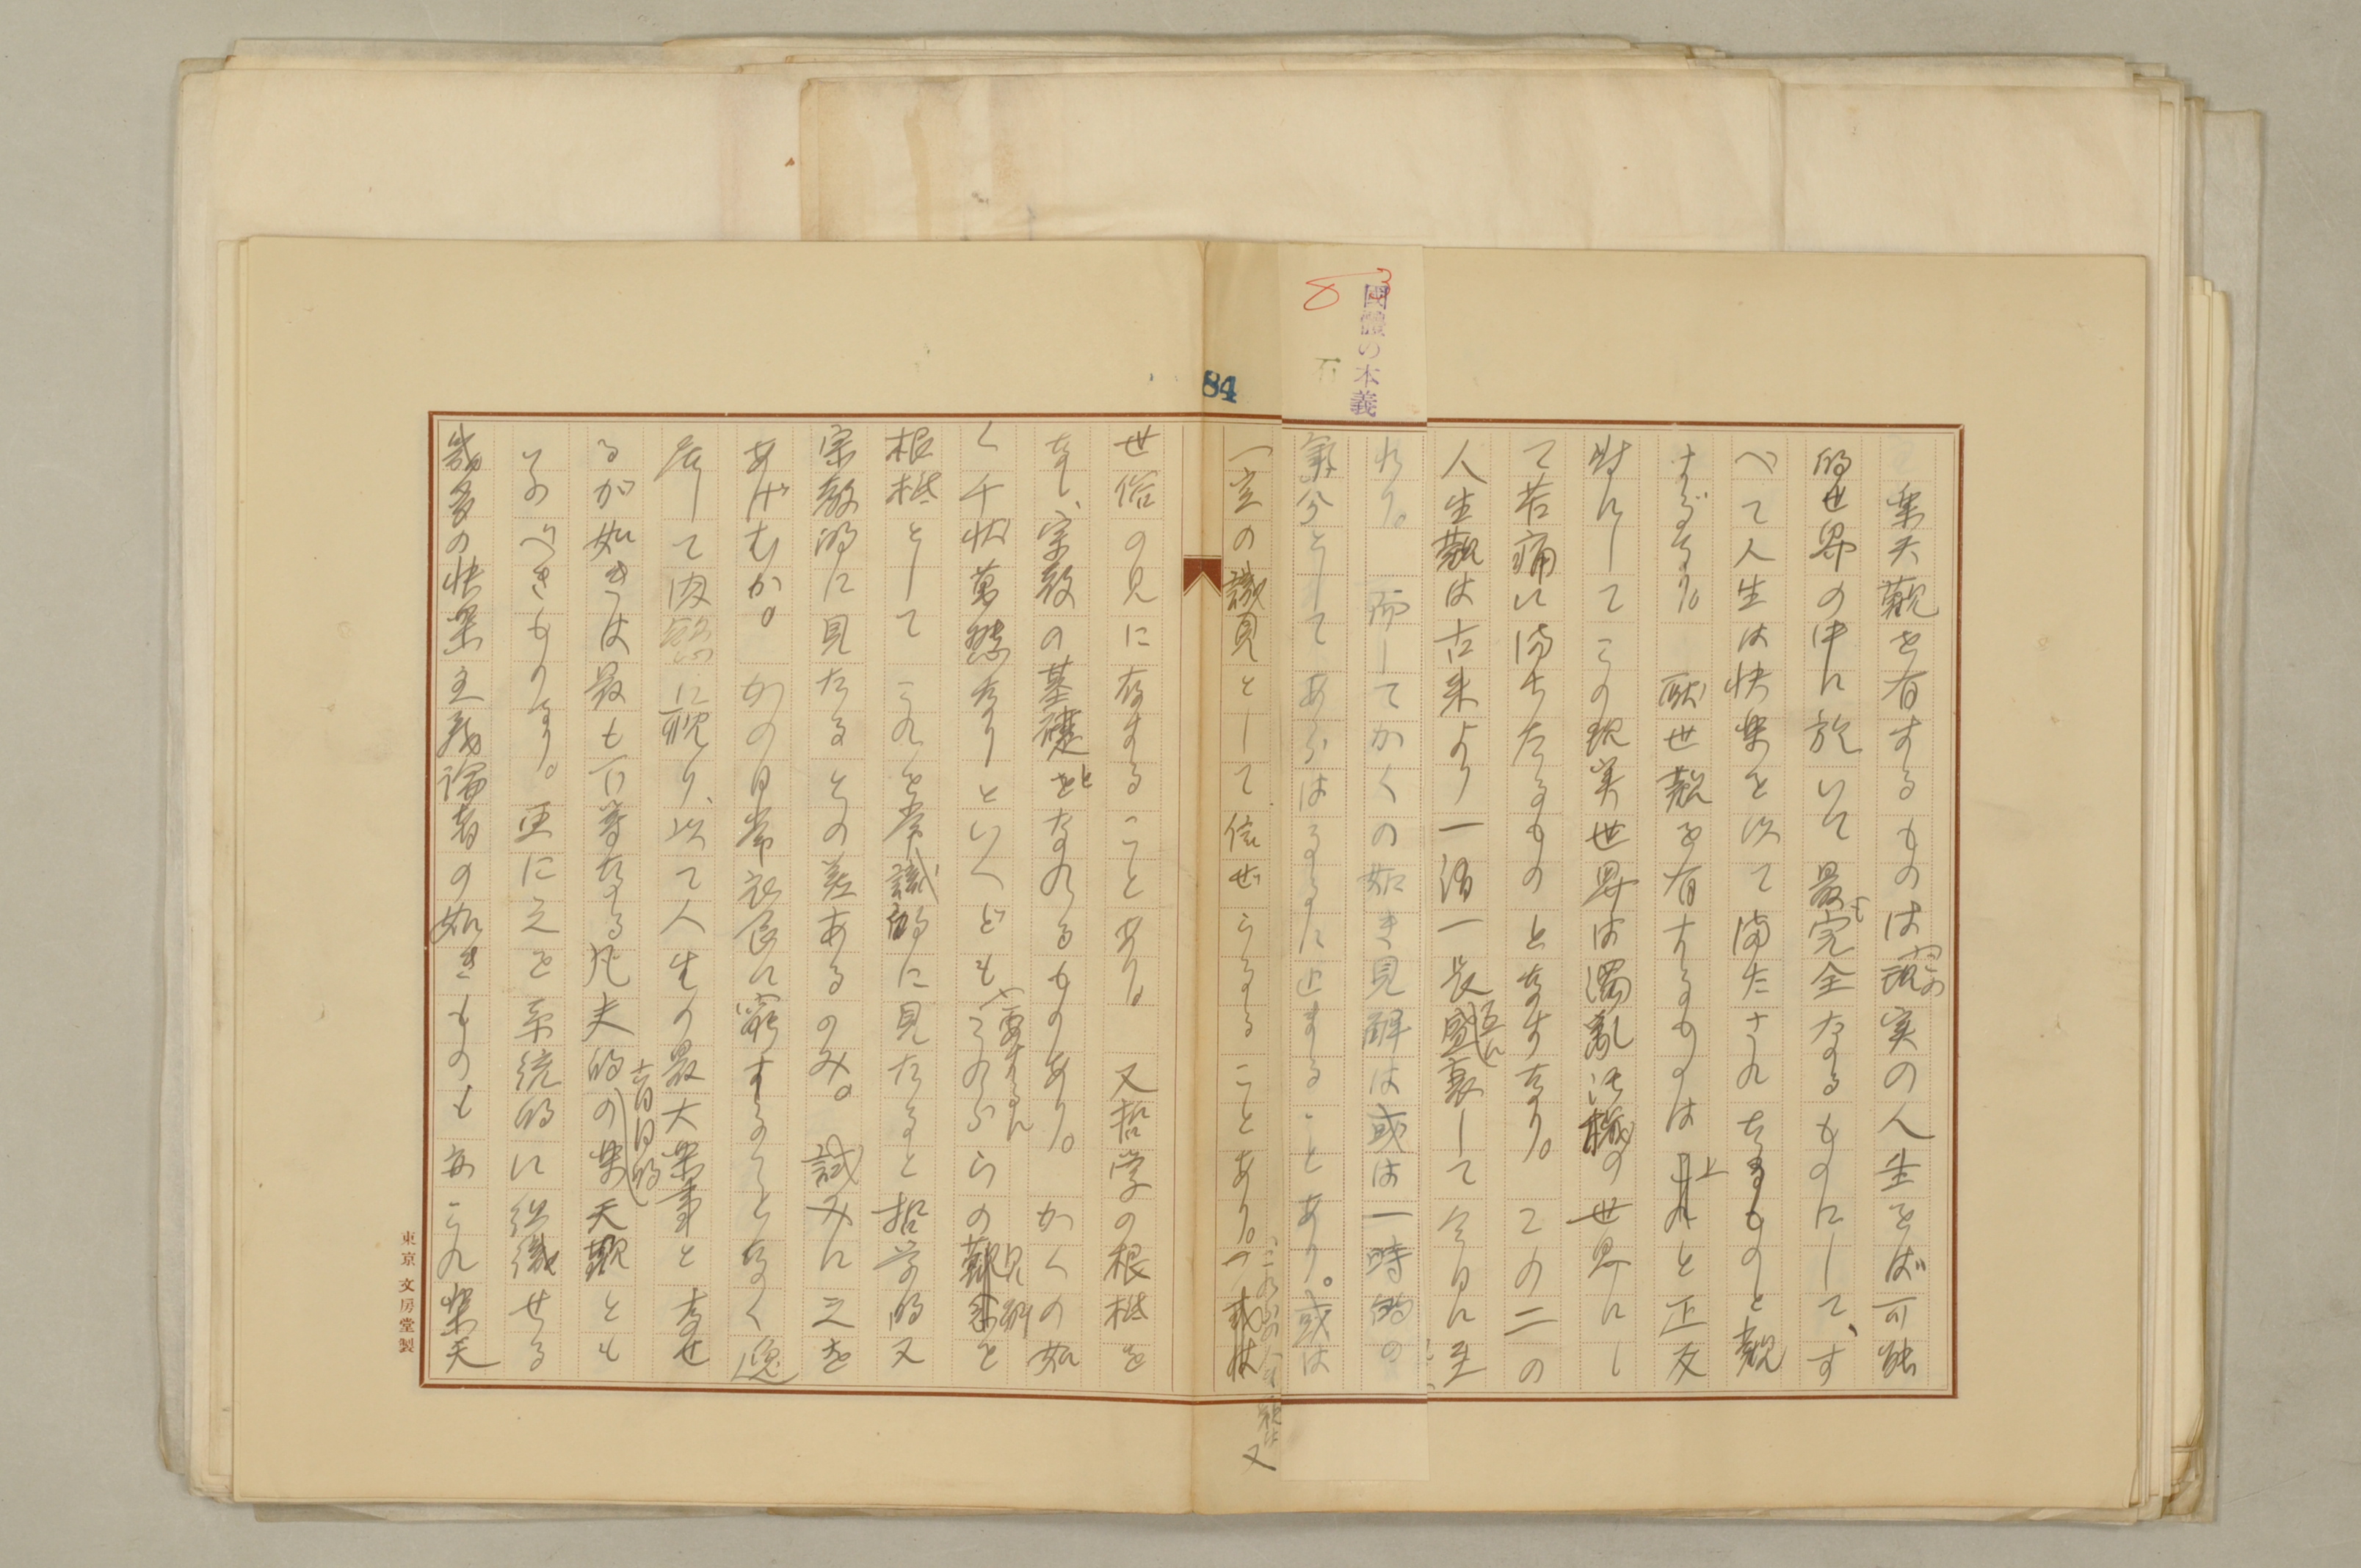 84
國體の本義
楽天観を有するものは現実の人生をば可能
この
的世界の中に於いて最完全なるものにして、す
も
べて人生は快楽を以て満たされたるものと観
するなり。厭世観を有するものは之れと正反
対にしてこの現実世界は濁乱汚穢の世界にし
て苦痛に満ちたるものとなすなり。この二の
人生観は古来より一消一長盛衰して今日に至
互に
れり。而してかくの如き見解は或は一時的の
氣分としてあらはるるに止まることあり。或は
一定の識見として信ぜらるることあり。或は
又
世俗の見に存することあり。又哲学の根柢を
なし、宗教の基礎をなれるものあり。かくの如
と
く千状萬態なりといへどもこれらの観念を
要するに
見解
根柢としてこれを常識的に見たると哲学的又
宗教的に見たるとの差あるのみ。試みに之を
あげむか。かの日常衣食に窮することなく逸
居して肉慾に耽り、以て人生の最大楽事となせ
るが如きは最も下等なる凡夫的の楽天観とも
盲目的
いふべきものなり。更に之を系統的に組織せる
幾多の快楽主義論者の如きものも亦これ楽天
東京 文房堂製